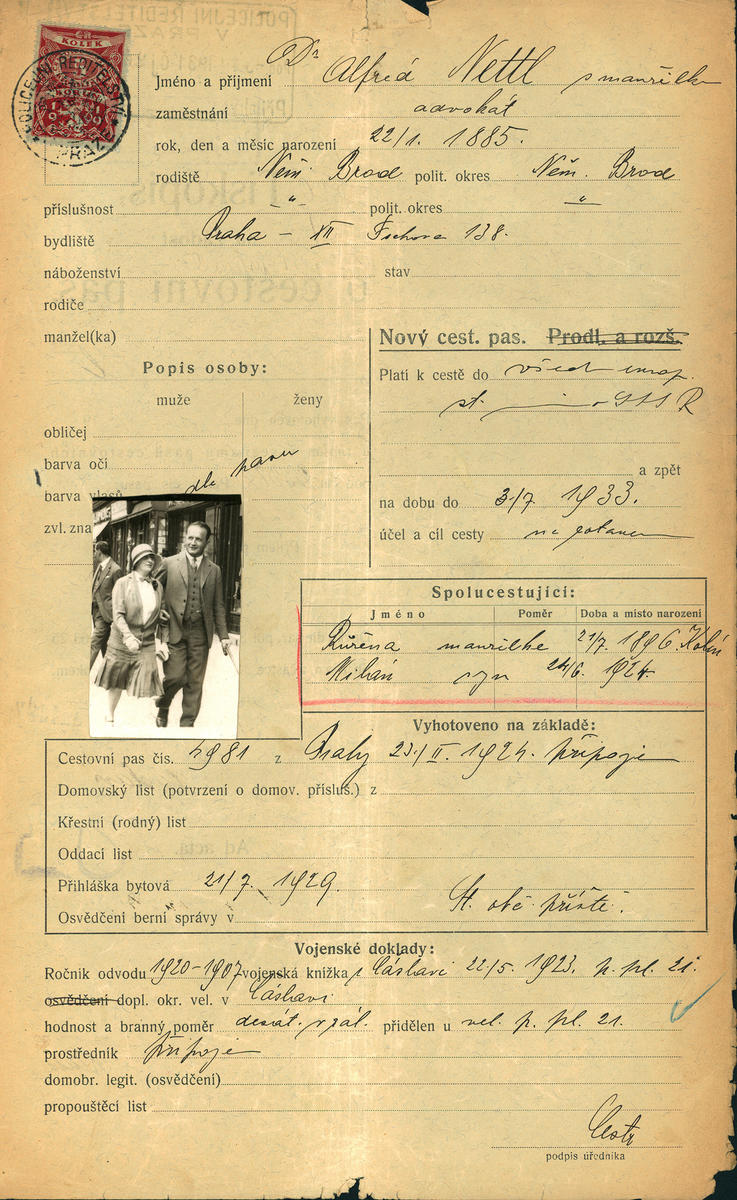 KOLEK
POLICEJNÍ ŘEDITELSTVÍ
PRAZE
Jméno a příjmení Dr Alfréd Nettl s manželkou
zaměstnání advokát
rok, den a měsíc narození 22/1. 1885.
rodiště Něm. Brod polit. okres Něm. Brod
příslušnost „ polit. okres „
bydliště Praha – XII 138.
náboženství stav
rodiče
manžel(ka)
Nový cest. pas. Prodl. a rozš.
Popis osoby:
muže ženy
Platí k cestě do všech evrop.
st. SSSR
obličej
barva očí
a zpět
barva vlasů dle pasu
na dobu do 3/7. 1933.
zvl. zna
účel a cíl cesty
Spolucestující:
Jméno Poměr Doba a místo narození
Růžena manželka 21/7. 1896. Kolín
Milan syn 24/6. 1924.
Vyhotoveno na základě:
Cestovní pas čís. 4981 z Prahy 23/II. 1924. připoje
Domovský list (potvrzení o domov. přísluš.) z
Křestní (rodný) list
Oddací list
Přihláška bytová 21/7. 1929.
Osvědčení berní správy v St. obč. příště.
Vojenské doklady:
Ročník odvodu 1920-1907 vojenská knížka Čáslavi 22/5. 1923. p. pl. 21.
osvědčení dopl. okr. vel. v Čáslavi
hodnost a branný poměr desát. v zál. přidělen u vel. p. pl. 21.
prostředník připoje
domobr. legit. (osvědčení)
propouštěcí list
podpis úředníka